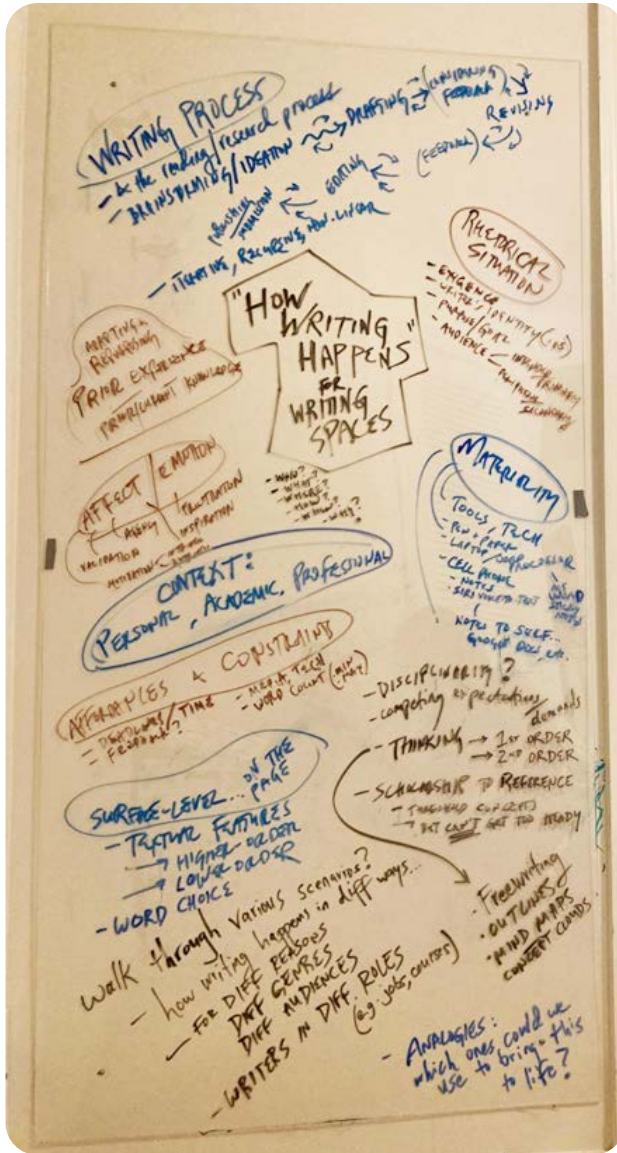 WRITING PROCESS
- & the reading/research process
- BRAINSTORMING/IDEATION → DRAFTING → (CONSIDERING FEEDBACK)
REVISING
(FEEDBACK)
EDITING
SUBMISSION
- ITERATIVE, RECURSIVE, NON-LINEAR
RHETORICAL
SITUATION
- EXIGENCE
- WRITER'S IDENTITY (-IES)
- PURPOSE/GOAL
- AUDIENCE
PRIMARY
SECONDARY
"HOW
WRITING
HAPPENS"
FOR
WRITING
SPACES
ADAPTING &
PRIOR EXPERIENCE
KNOWLEDGE
AFFECT / EMOTION
AGENCY
FRUSTRATION
INSPIRATION
VALIDATION
MOTIVATION
- WHO?
- WHAT?
- WHERE?
- HOW?
- WHEN?
- WHY?
MATERIALITY
TOOLS, TECH
- PEN & PAPER
- LAPTOP
- CELL PHONE
- NOTES
- SIRI VOICE TO TEXT
NOTES TO SELF...
GOOGLE DOCS, ETC.
CONTEXT:
PERSONAL, ACADEMIC, PROFESSIONAL
AFFORDANCES & CONSTRAINTS
- DEADLINES/TIME
- FEEDBACK?
- MEDIA, TECH
- WORD COUNT (MIN - MAX)
- DISCIPLINARITY?
- competing expectations/
demands
- THINKING → 1ST ORDER
→ 2ND ORDER
- SCHOLARSHIP TO REFERENCE
- THRESHOLD CONCEPTS
- BUT CAN'T GET TOO HEADY
SURFACE-LEVEL... ON THE
PAGE
- TEXTUAL FEATURES
→ HIGHER ORDER
→ LOWER ORDER
- WORD CHOICE
- Freewriting
• OUTLINES
• MIND MAPS
CONCEPT CLOUDS
walk through various scenarios?
- how writing happens in diff ways...
- FOR DIFF REASONS
DIFF GENRES
DIFF AUDIENCES
- WRITERS IN DIFF. ROLES
(e.g. jobs, courses)
- ANALOGIES:
which ones could we
use to bring this
to life?